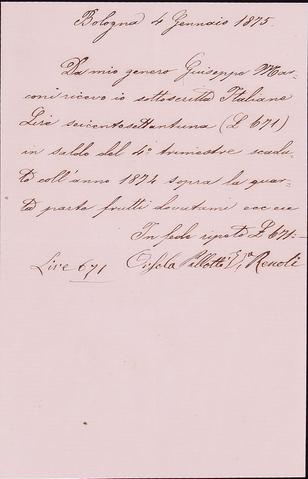 Bologna 4 Gennaio 1875.
Da mio genero Giuseppe Mar-
coni ricevo io sottoscritta Italiane
Lire seicentosettantuna (L 671)
in saldo del 4º trimestre scadu-
to coll'anno 1874 sopra la quar-
ta parte frutti dovutimi ecc ecc
In fede ripeto L 671.-
Lire 671 Orsola Pallotti Renoli